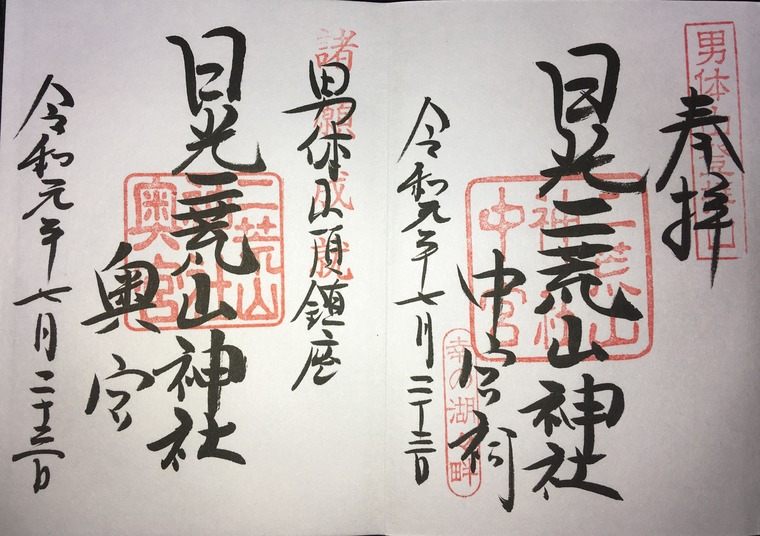 奉拝
日光二荒山神社
中宮祠
令和元年七月二十三日
二荒山
神社
中宮
幸の湖
男体山頂鎮座
諸願成就
日光二荒山神社
奥宮
令和元年七月二十三日
二荒山
奥宮